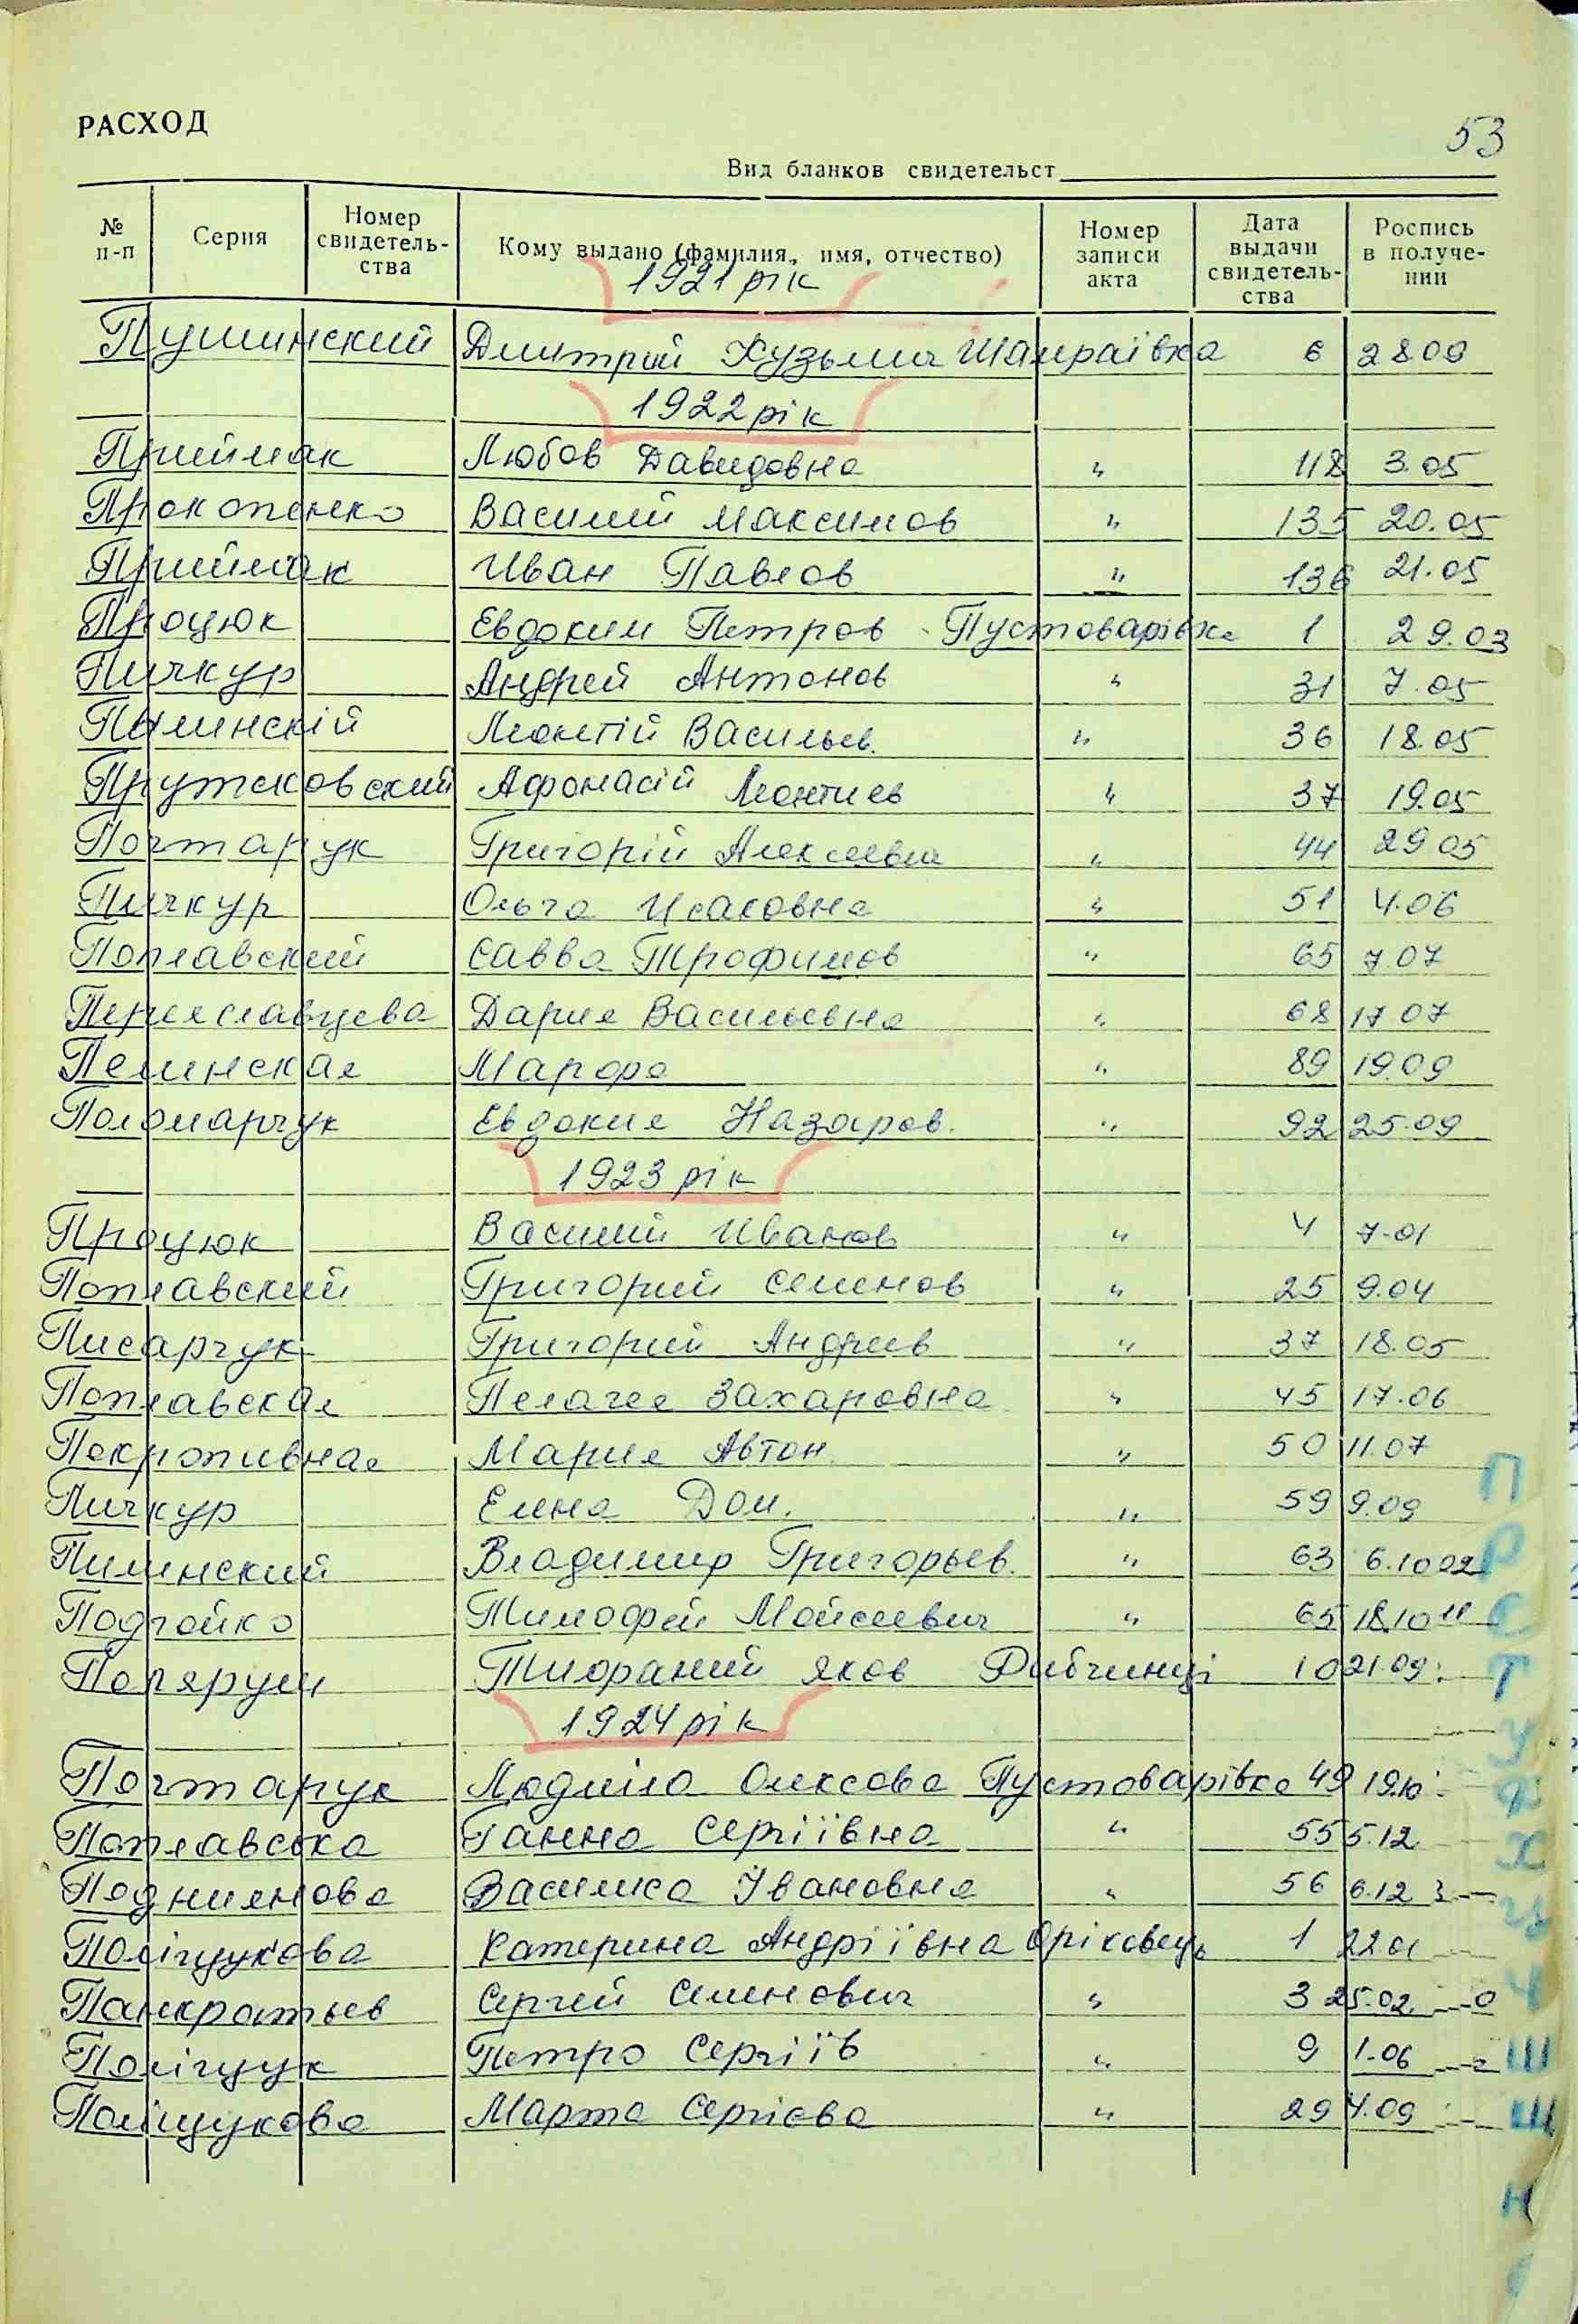 РАСХОД
53
Вид бланков свидетельст
№ п-п Серия Номер свидетель-ства Кому выдано (фамилия, имя, отчество) Номер записи акта Дата выдачи свидетель-ства Роспись в получе-нии
1921 рік
Пушинский Дмитрий Кузьмич Шамраївка 6 28 09
1922 рік
Приймак Любов Давидовна " 118 3.05
Прокопенко Василий Максимов " 135 20.05
Приймак Иван Павлов " 136 21.05
Процюк Евдоким Петров Пустоварівка 1 29.03
Пичкур Андрей Антонов " 31 7.05
Пилинскій Леонтій Васильев. " 36 18.05
Прутковский Афонасій Леонтиев " 37 19.05
Почтарук Григорій Алексеевич " 44 29 05
Пичкур Ольга Исаковна " 51 4.06
Поплавский Савва Трофимов " 65 7.07
Переяславцева Дария Васильевна " 68 17 07
Пелинская Марфа " 89 19.09
Поломарчук Евдокия Назаров. " 92 25.09
1923 рік
Процюк Василий Иванов " 4 7-01
Поплавский Григорий Семенов " 25 9.04
Писарчук Григорий Андреев " 37 18.05
Поплавская Пелагея Захаровна " 45 17.06
Покропивная Мария Автон. " 50 11.07
Пичкур Елена Дом. " 59 9.09
Пилинский Владимир Григорьев. " 63 6.10 02
Подгойко Тимофей Мойсеевич " 65 18.10 11
Яков Дибчинці 10 21 09
1924 рік
Почтарук Людміла Олексова Пустоварівка 49 19.10
Поплавська Ганна Сергіївна " 55 5.12
Василиса Івановна " 56 6.12
Поліщукова Катерина Андріївна Оріховець 1 22 01
Панкратьев Сергей Семенович " 3 25.02
Поліщук Петро Сергіїв " 9 1.06
Поліщукова Марта Сергієва " 29 4.09
П
Р
С
Т
У
Ф
Х
Ц
Ч
Ш
Щ